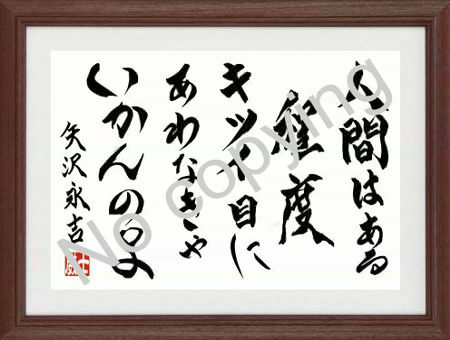 人間はある
程度
キツイ目に
あわなきゃ
いかんのよ
矢沢永吉
No copying